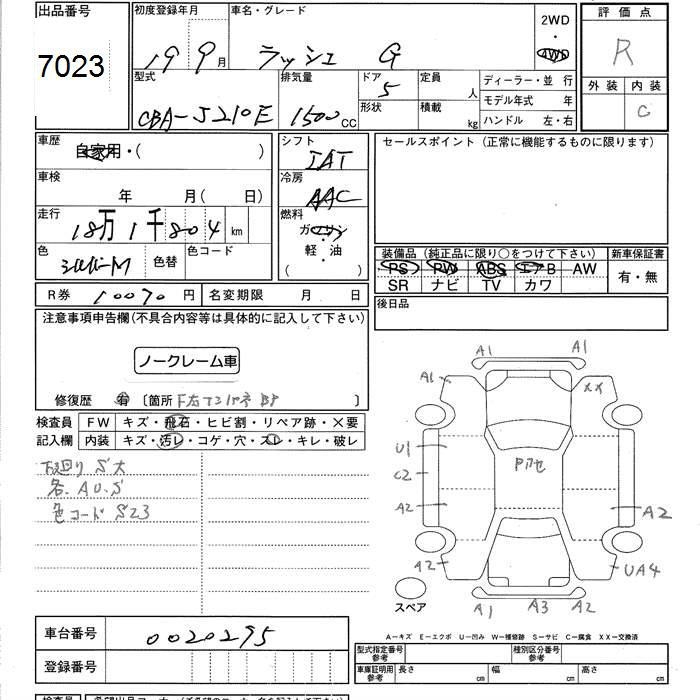 出品番号
7023
初度登録年月
19 9月
車名・グレード
ラッシュ G
2WD
・
4WD
評価点
R
外装 内装
C
型式
CBA-J210E
排気量
1500cc
ドア
5
形状
定員
人
積載
kg
ディーラー・並 行
モデル年式 年
ハンドル 左・右
車歴
自家用・( )
車検
年 月( 日)
走行
18万1千804km
色
シルバーM
色替
色コード
シフト
IAT
冷房
AAC
燃料
ガソリン
軽・油
( )
セールスポイント(正常に機能するものに限ります)
装備品(純正品に限り○をつけて下さい)
PS PW ABS エアB AW
SR ナビ TV カワ
新車保証書
有・無
R券 10070円
名変期限 月 日
後日品
注意事項申告欄(不具合内容等は具体的に記入して下さい)
ノークレーム車
修復歴 有 〔箇所 〕
検査員
記入欄
FW キズ・飛石・ヒビ割・リペア跡・×要
内装 キズ・汚レ・コゲ・穴・スレ・キレ・破レ
下廻りS大
各.AU.S
色コード S23
A1 A1
A1 XX
U1
C2
A2 A2
A2 UA4
A1 A3 A2
スペア
A-キズ E-エクボ U-凹み W-補修跡 S-サビ C-腐食 XX-交換済
車台番号
0020295
登録番号
型式指定番号
参考
種別区分番号
参考
車庫証明用
参考
長さ cm
幅 cm
高さ cm
検査員